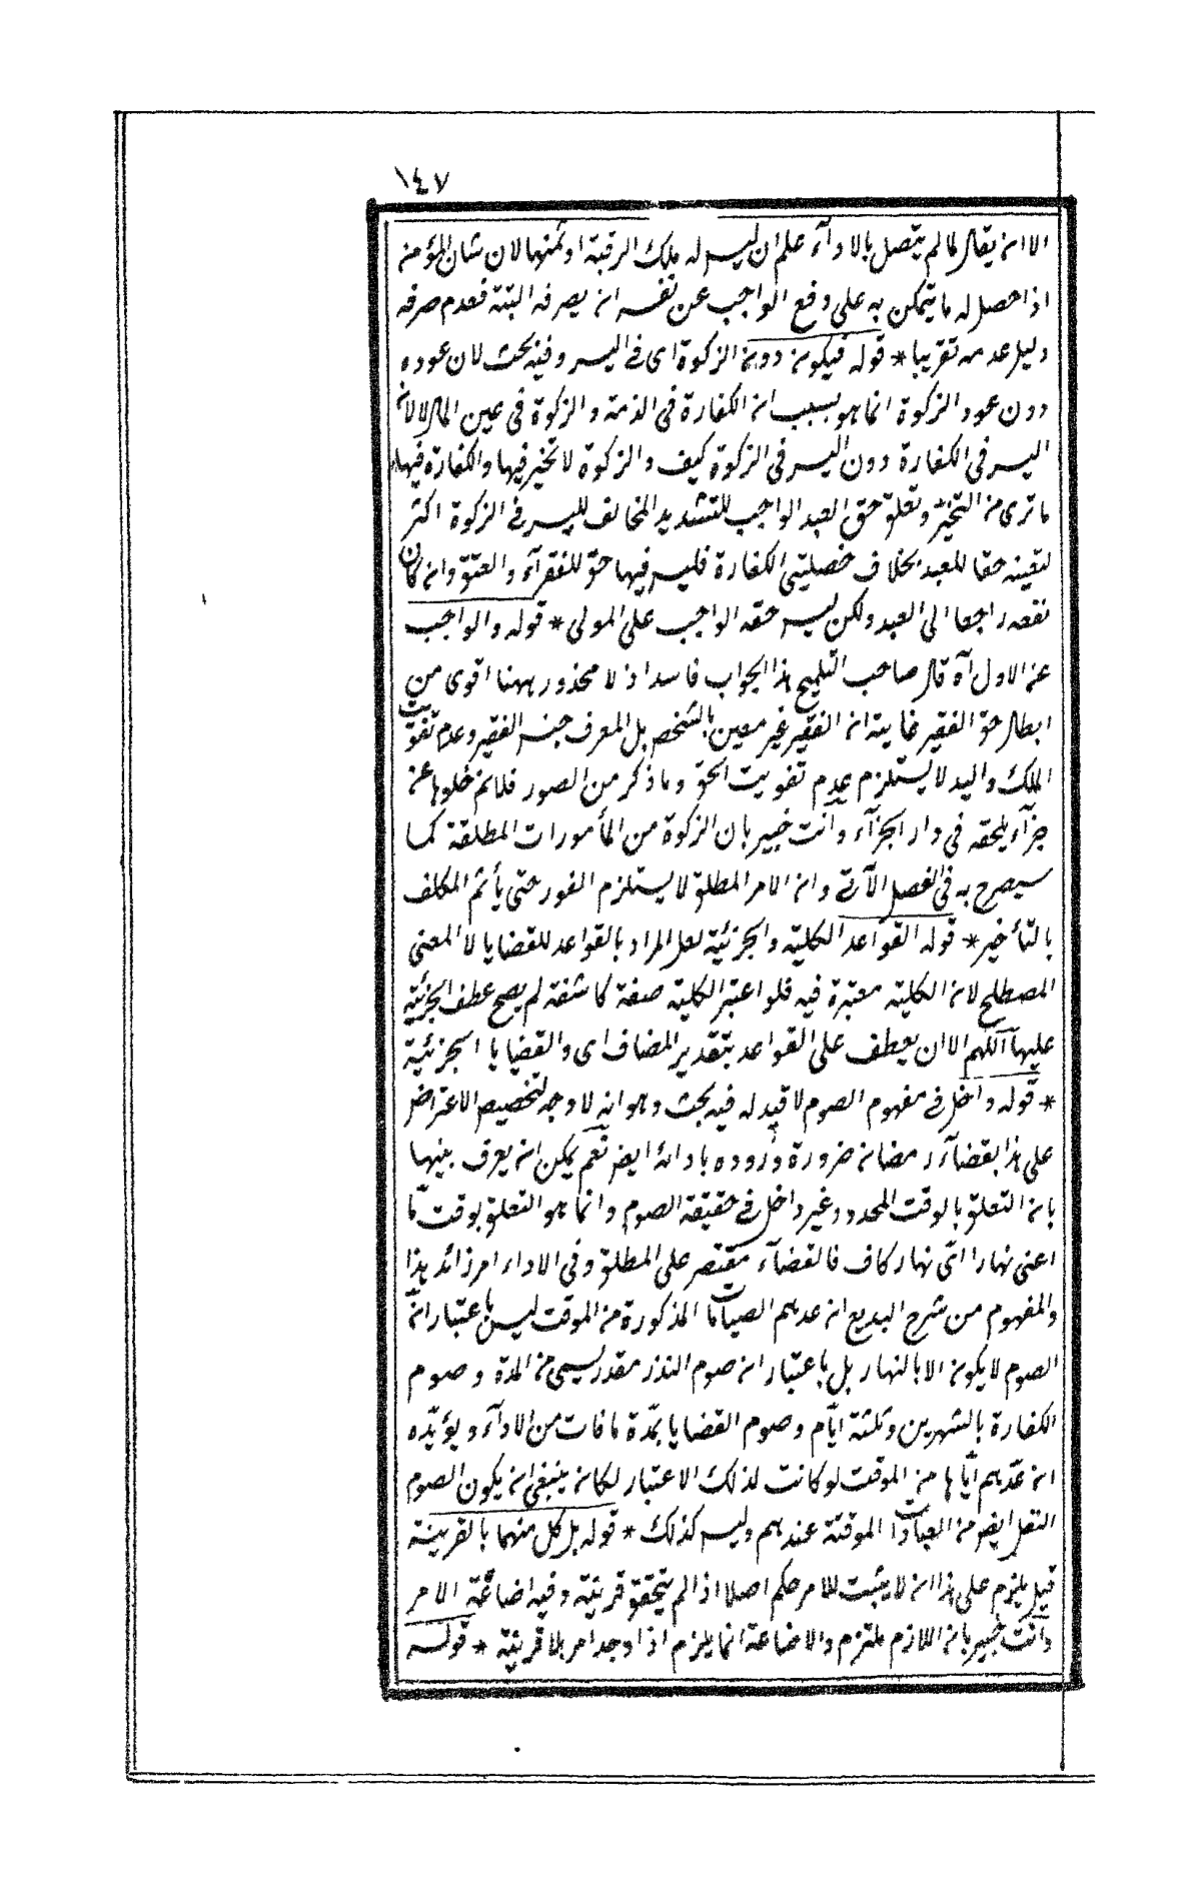 ١٤٧
الا ان يقال لما لم يتصل بالاداء علم ان ليس له ملك الرقبة او ثمنها لان شان المؤمن
اذا حصل له ما يتمكن به على رفع الواجب عن نفسه ان يصرفه البتة فعدم صرفه
دليل عدمه تقريبا * قوله فيكون دون الزكوة اى فى اليسر وفيه بحث لان عوده
دون عود الزكوة انما هو بسبب ان الكفارة فى الذمة والزكوة فى عين المال لا لان
اليسر فى الكفارة دون اليسر فى الزكوة كيف والزكوة لا تخير فيها والكفارة فيها
ما ترى من التخير وتعلق حق العبد الواجب للتشديد المخالف لليسر فى الزكوة اكثر
لتعينه حقا للعبد بخلاف خصلتى الكفارة فليس فيها حق للفقراء والعتق وان كان
نفعه راجعا الى العبد ولكن ليس حقه الواجب على المولى * قوله والواجب
عن الاول آه قال صاحب التلميح هذا الجواب فاسد اذ لا محذور ههنا اقوى من
ابطال حق الفقير غايته ان الفقير غير معين بالشخص بل المعرف جنس الفقير وعدم تفويت
الملك واليد لا يستلزم عدم تفويت الحق وما ذكر من الصور فلانم خلوها عن
جزآء يلحقه فى دار الجزآء وانت خبير بان الزكوة من المأمورات المطلقة كما
سيصرح به فى الفصل الآتى وان الامر المطلق لا يستلزم الفور حتى يأثم المكلف
بالتأخير * قوله القواعد الكلية والجزئية لعل المراد بالقواعد للقضايا لا المعنى
المصطلح لان الكلية معتبرة فيه فلو اعتبر الكلية صفة كاشفة لم يصح عطف الجزئية
عليها اللهم الا ان يعطف على القواعد بتقدير المضاف اى والقضايا الجزئية
* قوله داخل فى مفهوم الصوم لا قيد له فيه بحث وهو انه لا وجه لتخصيص الاعتراض
على هذا بقضاء رمضان ضرورة وروده بادائه ايضا نعم يمكن ان يعرف بينهما
بان التعلق بالوقت المحدود غير داخل فى حقيقة الصوم وانما هو التعلق بوقت ما
اعنى نهارا اى نهار كاف فالقضاء مقتصر على المطلق وفى الاداء امر زائد هذا
والمفهوم من شرح البديع ان عدهم الصيامات المذكورة من الموقت ليس باعتبار ان
الصوم لا يكون الا بالنهار بل باعتبار ان صوم النذر مقدر بسمى من المدة وصوم
الكفارة بالشهرين وثلثة ايام وصوم القضايا بمدة ما فات من الاداء ويؤيده
ان عدهم اياها من الموقت لو كانت لذلك الاعتبار لكان ينبغى ان يكون الصوم
النفل ايضا من العبادات الموقتة عندهم وليس كذلك * قوله بل كل منهما بالقرينة
قيل يلزم على هذا ان لا يثبت للامر حكم اصلا اذا لم يتحقق قرينة وفيه اضاعة الامر
وانت خبير بان اللازم ملتزم والاضاعة انما يلزم اذا وجد امر بلا قرينة * قوله